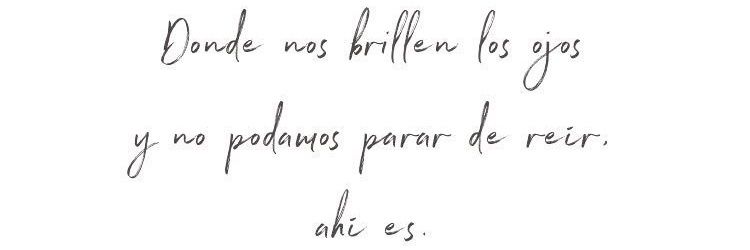 Donde nos brillen los ojos
y no podamos parar de reír,
ahí es.